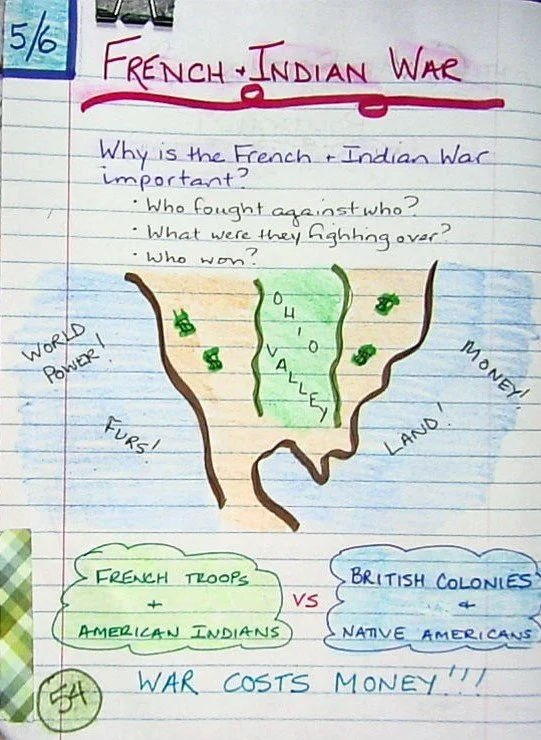 5/6
FRENCH + INDIAN WAR
Why is the French + Indian War
important?
• Who fought against who?
• What were they fighting over?
• Who won?
WORLD
POWER!
FURS!
$
$
OHIO
VALLEY
$
$
MONEY!
LAND!
FRENCH TROOPS
+
AMERICAN INDIANS
VS
BRITISH COLONIES
+
NATIVE AMERICANS
54
WAR COSTS MONEY!!!